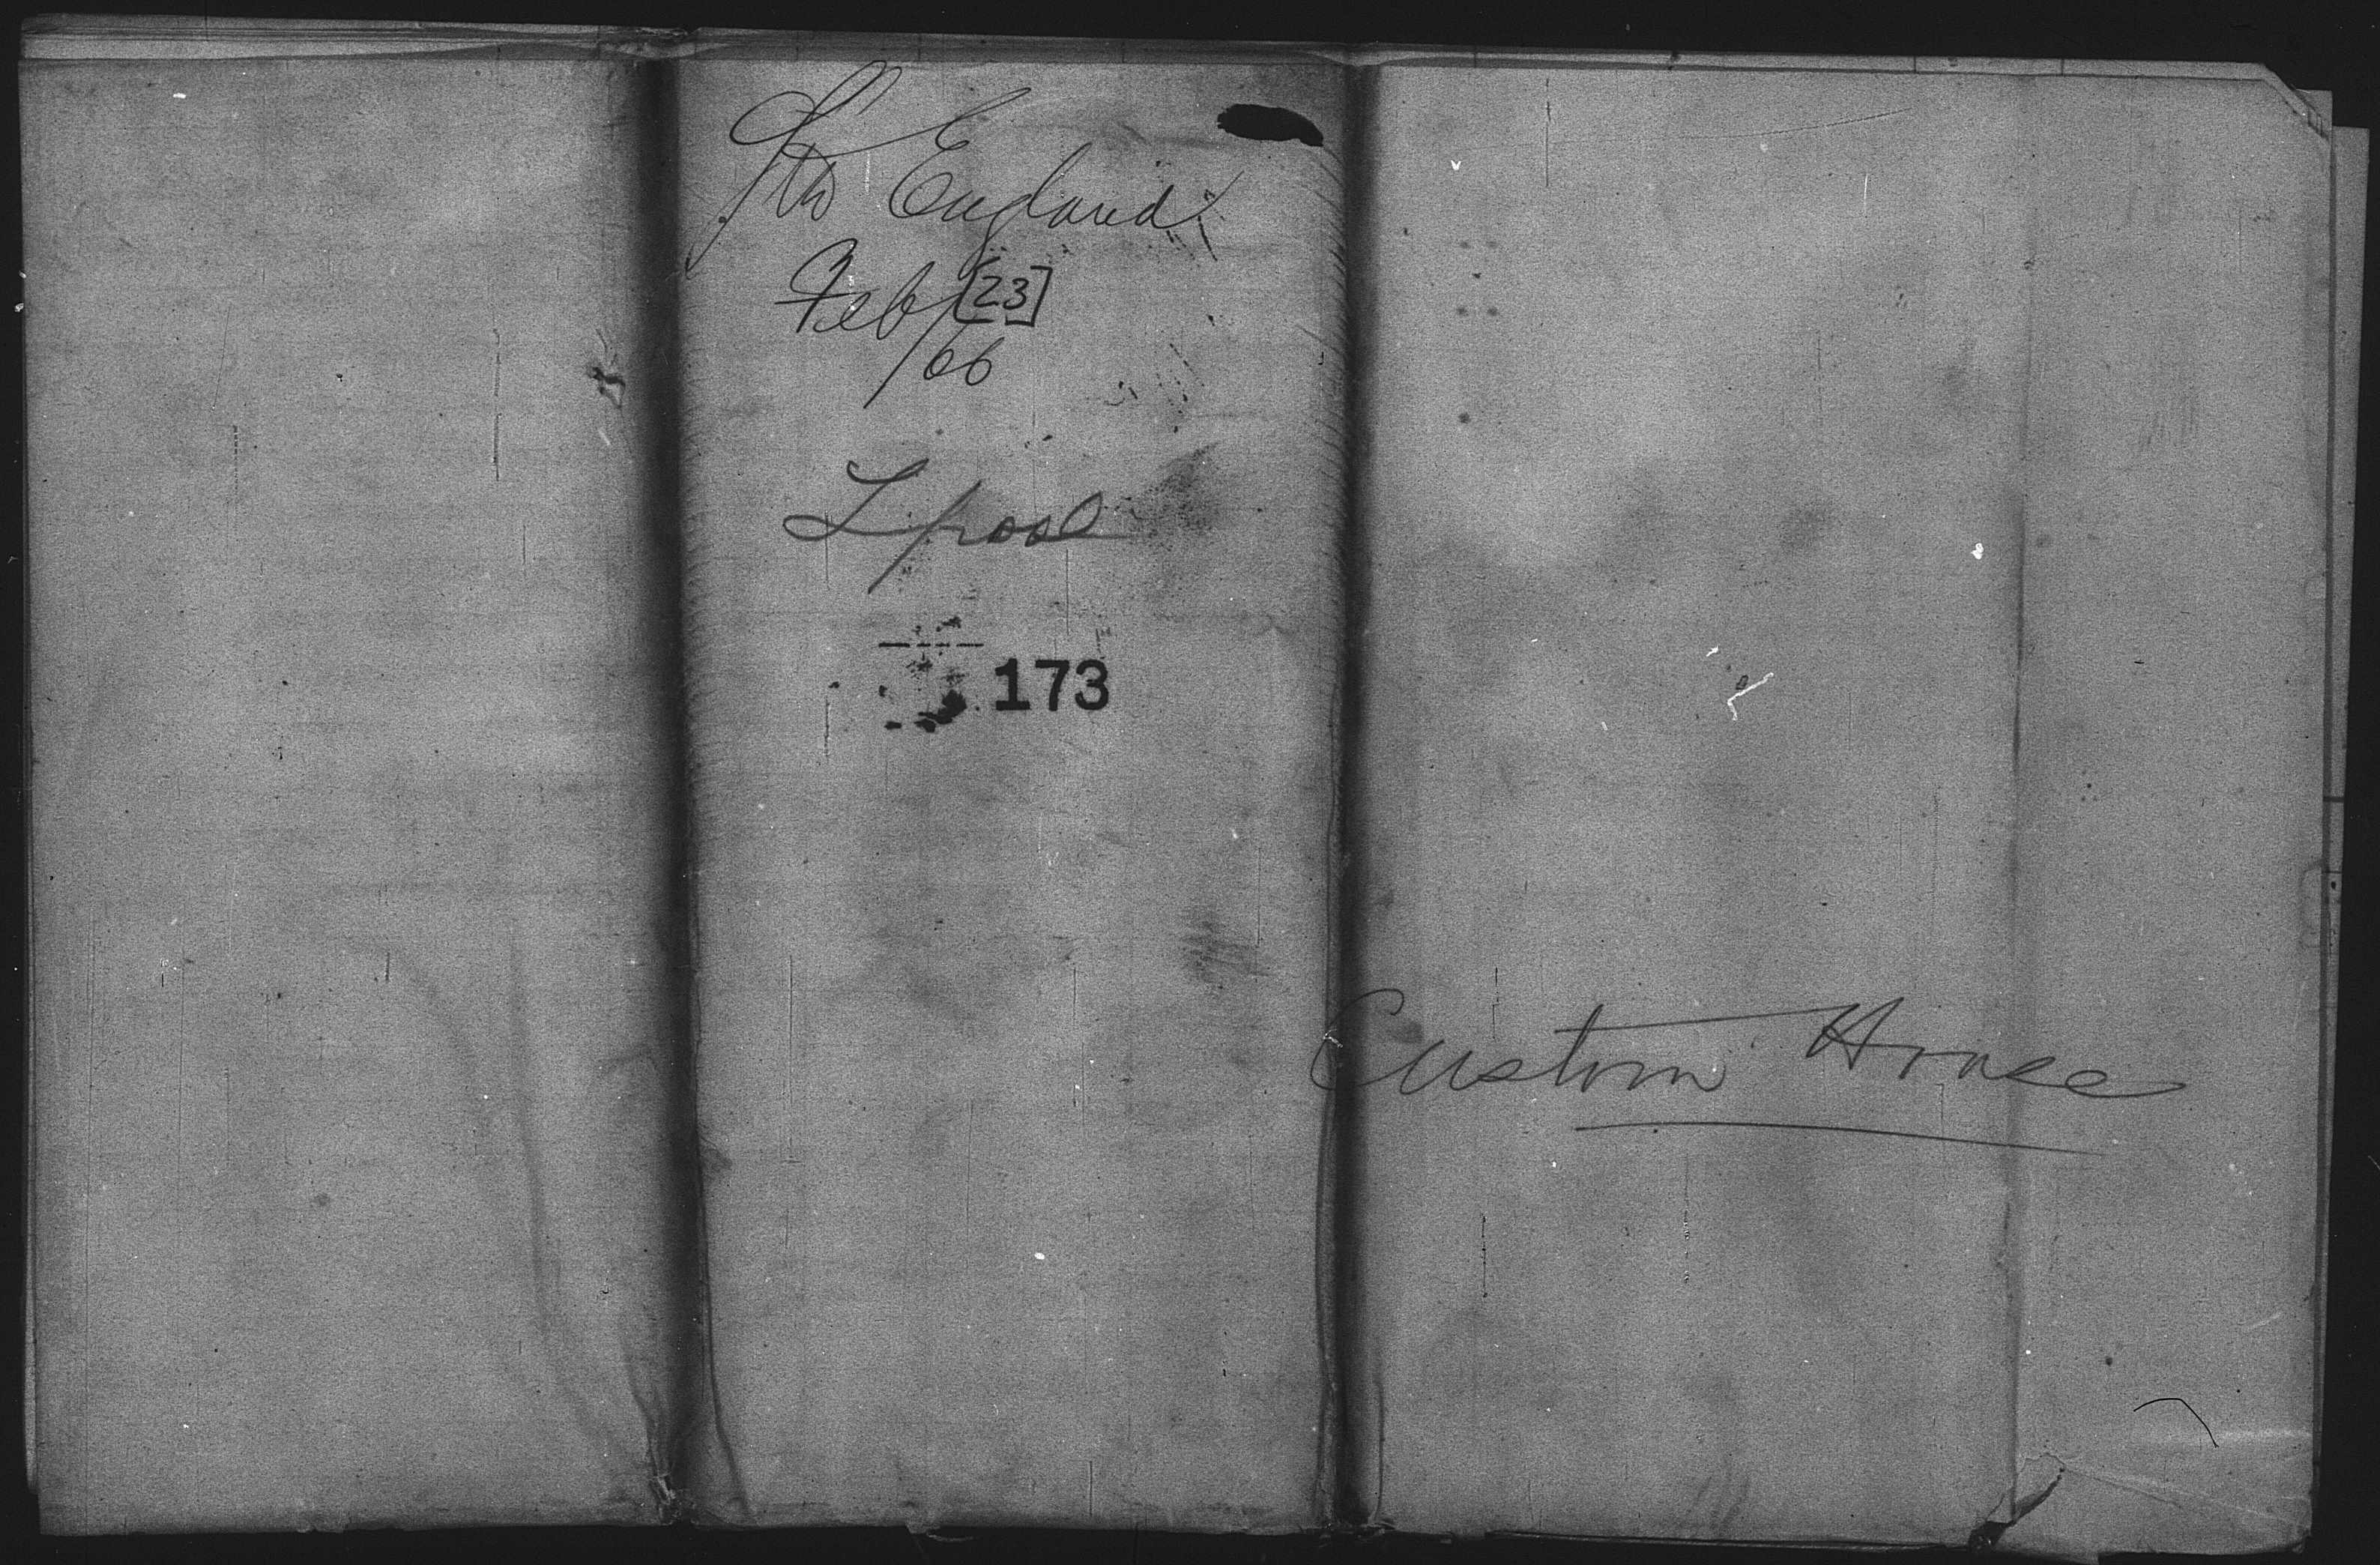 Str England
Feb [23]
/66
Lpool
173
Custom House